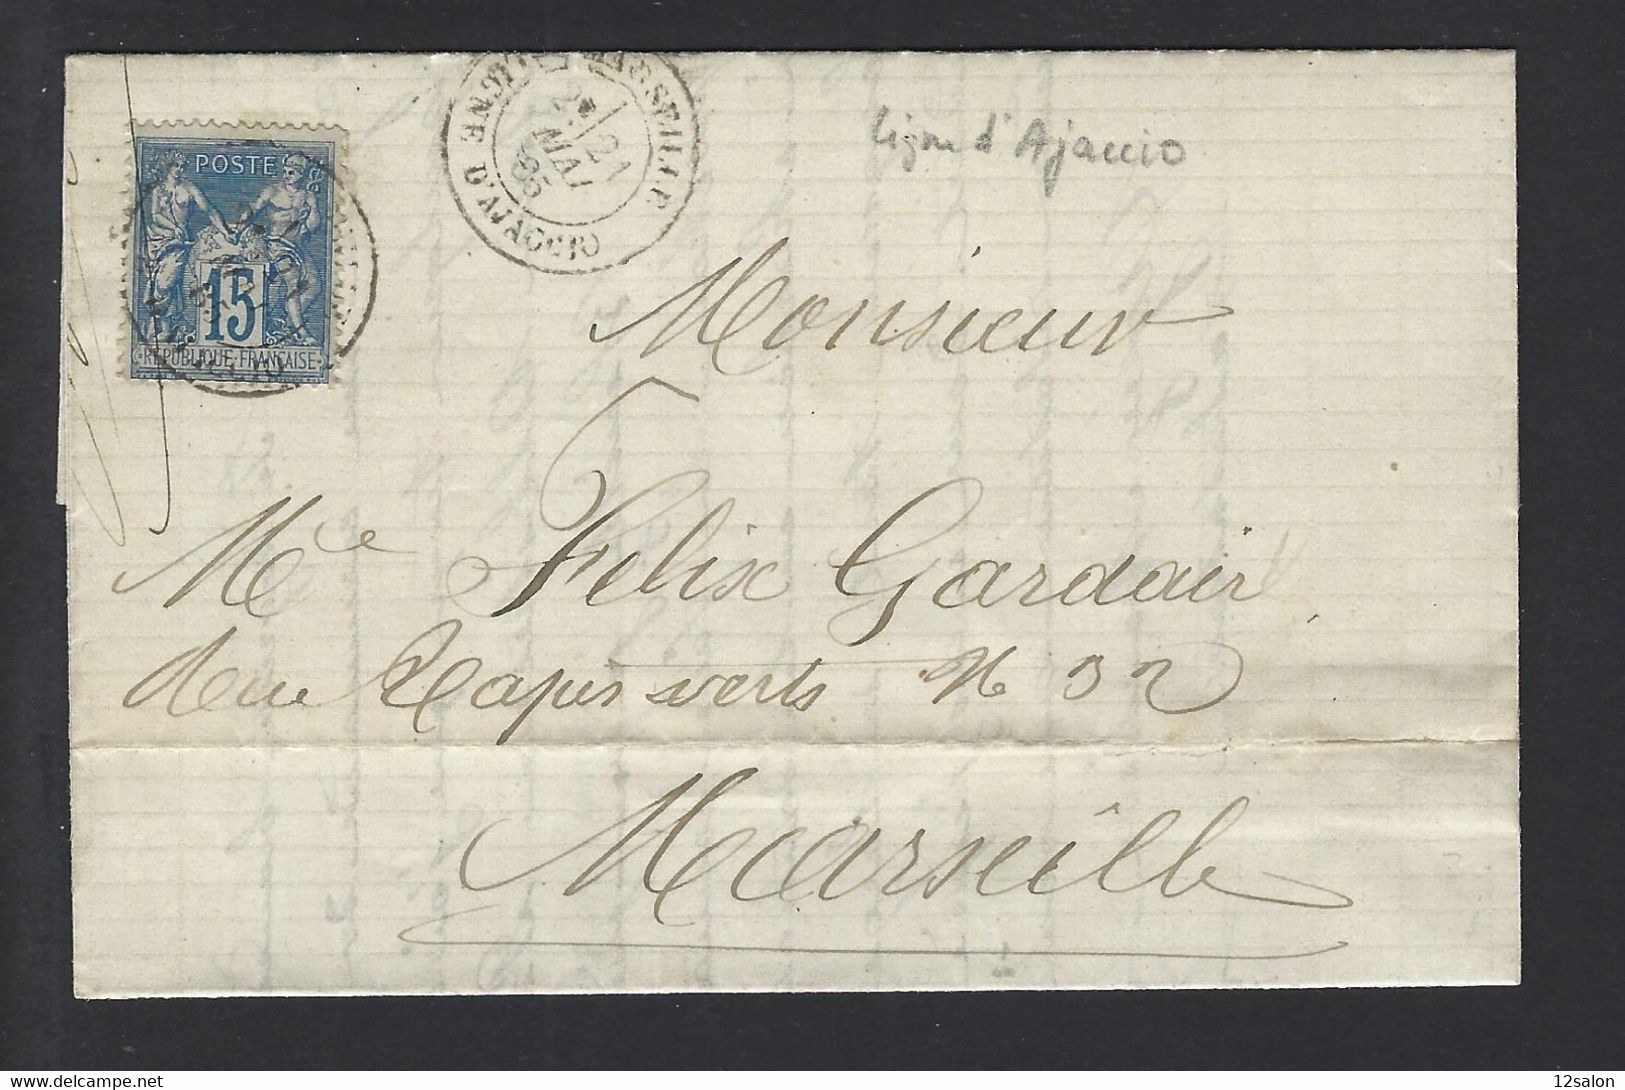 POSTE
15
REPUBLIQUE FRANÇAISE
MARSEILLE
LIGNE D'AJACCIO
21
MAI
85
Ligne d'Ajaccio
Monsieur
Mce Felix Gardair
Rue Tapis verts N 32
Marseille
12salon